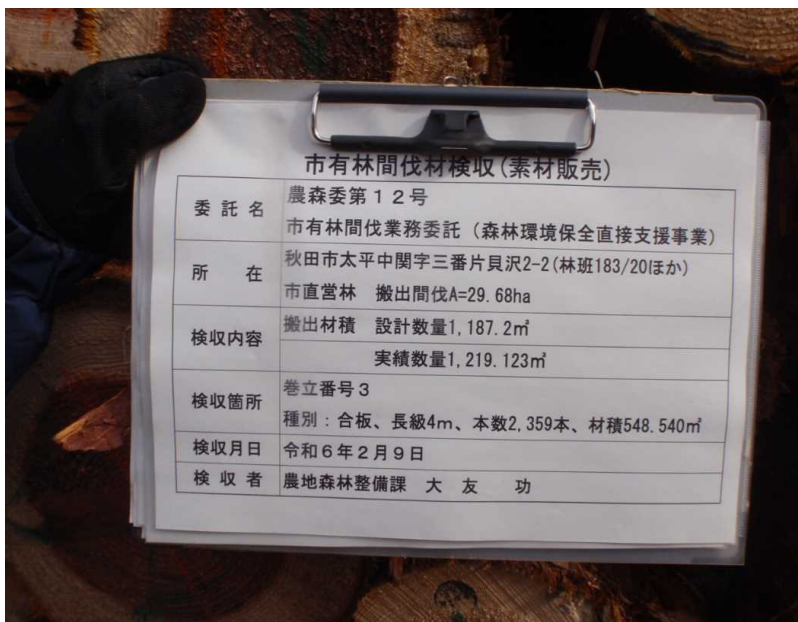 市有林間伐材検収(素材販売)
委託名
農森委第12号
市有林間伐業務委託(森林環境保全直接支援事業)
所在
秋田市太平中関字三番片貝沢2-2(林班183/20ほか)
市直営林 搬出間伐A=29.68ha
検収内容
搬出材積 設計数量1,187.2㎥
実績数量1,219.123㎥
検収箇所
巻立番号3
種別:合板、長級4m、本数2,359本、材積548.540㎥
検収月日
令和6年2月9日
検収者
農地森林整備課 大友 功